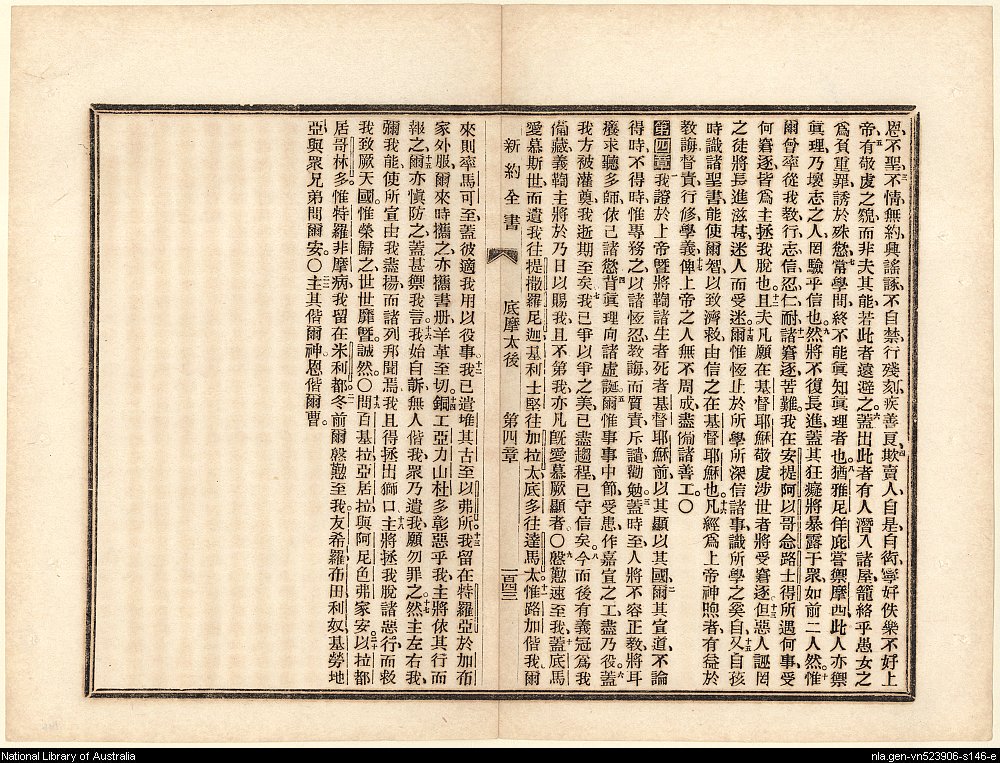 恩、不聖、不情、無約、興謠諑、不自禁、行殘刻、疾善良、欺賣人、自是自衒、寧好佚樂、不好上
帝、有敬虔之貌、而非夫其能、若此者遠避之、蓋出此者有人、潛入諸屋、籠絡乎愚女之
爲負重罪、誘於殊慾、常學問、終不能眞知眞理者也。猶雅尼佯庇嘗禦摩西、此人亦禦
眞理、乃壞志之人、罔驗乎信也。然將不復長進、蓋其狂癡將暴露于衆、如前二人然。惟
爾曾牽從我教、行志信忍仁耐、諸窘逐苦難、我在安提阿以哥念路士得所遇何事、受
何窘逐、皆爲主拯我脫也。且夫凡願在基督耶穌敬虔涉世者、將受窘逐、但惡人誣罔
之徒、將長進滋甚、迷人而受迷。爾惟恆止於所學所深信諸事、識所學之奚自、又自孩
時識諸聖書、能使爾智、以致濟救、由信之在基督耶穌也。凡經爲上帝神煦者、有益於
教誨督責、行修學義、俾上帝之人無不周成、盡備諸善工。〇
第四章 我證於上帝、曁將鞫諸生者死者基督耶穌前、以其顯以其國、爾其宣道、不論
得時不得時、惟專務之、以諸恆忍教誨、而質責斥譴勸勉、蓋時至人將不容正教、將耳
癢求聽多師、依己諸慾、背眞理、向諸虛誕、爾惟事事中節、受患、作嘉宣之工、盡乃役、蓋
我方被灌奠、我逝期至矣。我已爭以爭之美、已盡趨程、已守信矣。今而後有義冠爲我
備藏、義鞫主將於乃日以賜我、且不第我、亦凡旣愛慕厥顯者〇慇懃速至我、蓋底馬
愛慕斯世而遺我、往提撒羅尼迦、基利士堅往加拉太、底多往達馬太。惟路加偕我、
新約全書 底摩太後 第四章 一百四三
來則率馬可至、蓋彼適我用以役事。我已遣堆其古至以弗所。我留在特羅亞於加布
家外服、爾來時攜之、亦攜書册、羊革至切、銅工亞力山杜多彰惡乎我、主將依其行而
報之、爾亦愼防之、蓋甚禦我言。我始自訴無人偕我、衆乃遺我、願勿罪之、然主左右我、
彌我能、使所宣由我盡揚、而諸列邦聞焉、我且得拯出獅口、主將拯我脫諸惡行、而救
我致厥天國、惟榮歸之世世靡曁、誠然。〇問百基拉亞居拉與阿尼色弗家安。以拉都
居哥林多、惟特羅非摩病、我留在米利都。冬前爾慇懃至我、友希羅布田利奴基勞地
亞、與衆兄弟問爾安。〇主其偕爾神、恩偕爾曹。
National Library of Australia
nla.gen-vn523906-s146-e